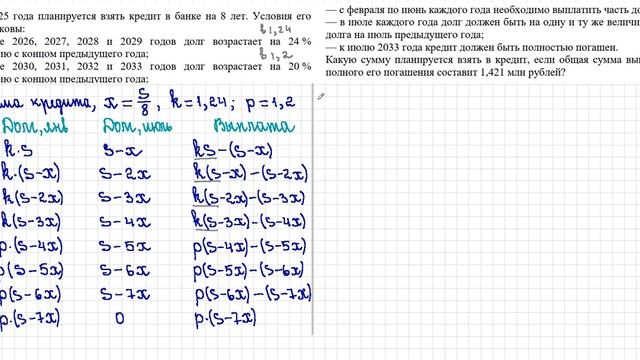 25 года планируется взять кредит в банке на 8 лет. Условия его
ковы:
в 1,24
е 2026, 2027, 2028 и 2029 годов долг возрастает на 24 %
ию с концом предыдущего года;
в 1,2
е 2030, 2031, 2032 и 2033 годов долг возрастает на 20 %
ию с концом предыдущего года;
— с февраля по июнь каждого года необходимо выплатить часть до
— в июле каждого года долг должен быть на одну и ту же величи
долга на июль предыдущего года;
— к июлю 2033 года кредит должен быть полностью погашен.
Какую сумму планируется взять в кредит, если общая сумма вы
полного его погашения составит 1,421 млн рублей?
ма кредита, x = S/8, k = 1,24; p = 1,2
Долг, янв Долг, июль Выплата
k·S S-x kS-(S-x)
k·(S-x) S-2x k(S-x)-(S-2x)
k(S-2x) S-3x k(S-2x)-(S-3x)
k(S-3x) S-4x k(S-3x)-(S-4x)
p·(S-4x) S-5x p(S-4x)-(S-5x)
p(S-5x) S-6x p(S-5x)-(S-6x)
p(S-6x) S-7x p(S-6x)-(S-7x)
p·(S-7x) 0 p·(S-7x)